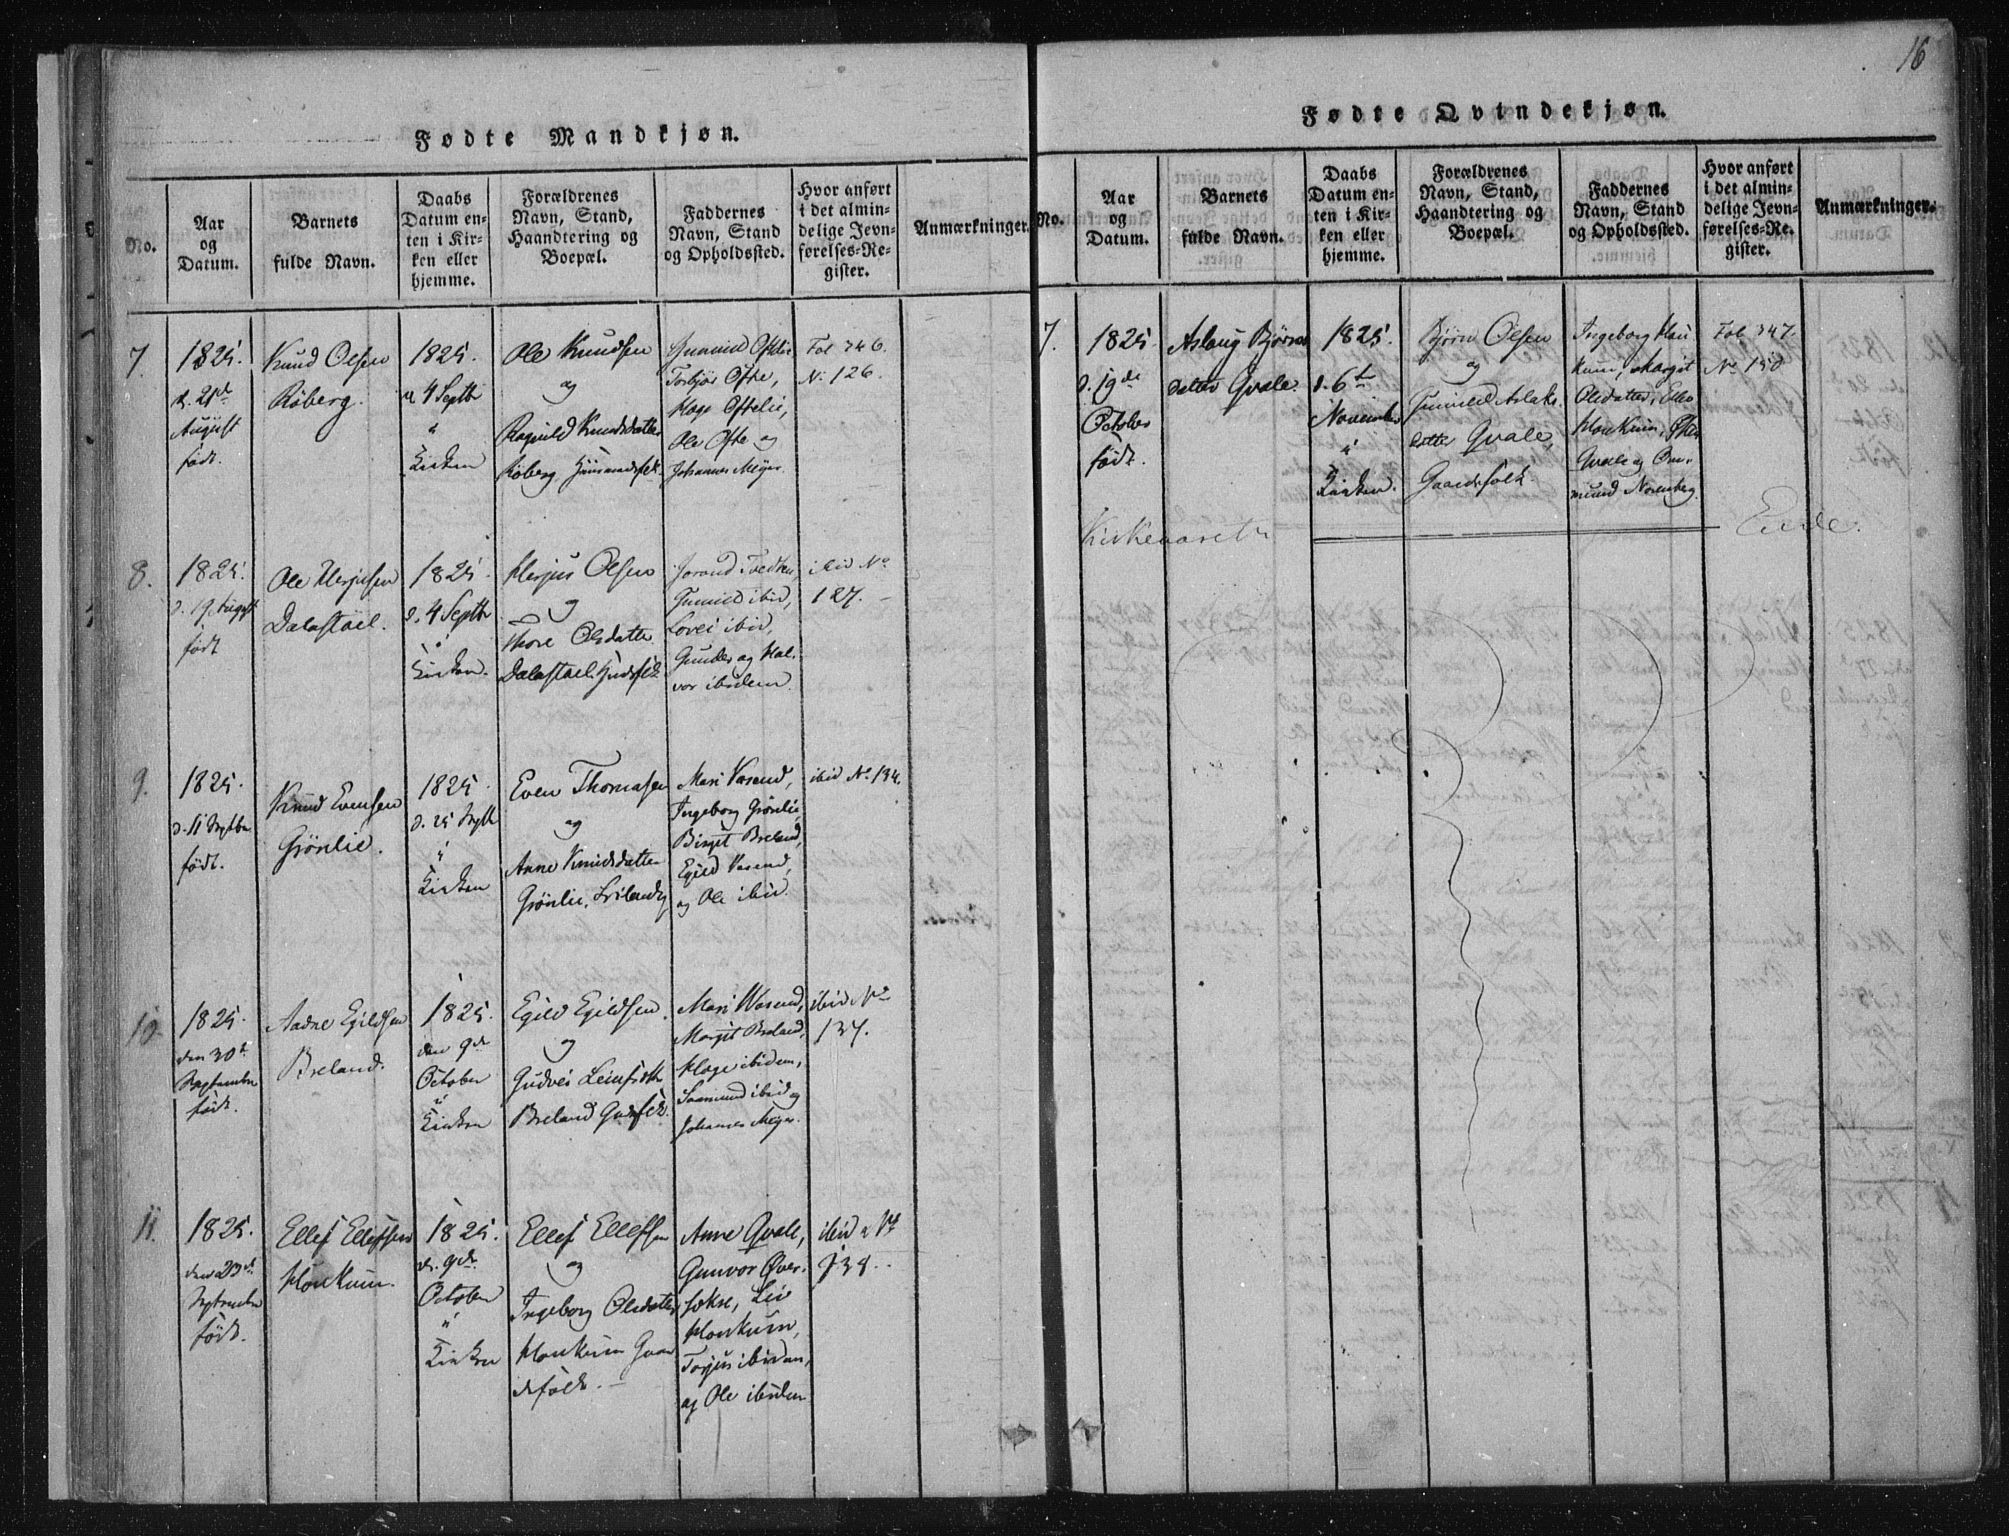 16
Fødte Mandkjøn.
No.
Aar
og
Datum.
Barnets
fulde Navn.
Daabs
Datum en-
ten i Kir-
ken eller
hjemme.
Forældrenes
Navn, Stand,
Haandtering og
Boepæl.
Faddernes
Navn, Stand
og Opholdssted.
Hvor anført
i det almin-
delige Jevn-
førelses-Re-
gister.
Anmærkninger.
7.
1825.
d. 21de
August
født.
Knud Olsen
Röberg.
1825.
d. 4 Septb
i
Kirken
Ole Knudsen
og
Ragnild Knudsdatter
Röberg Huusmandsfolk.
Gunnild Oftelie
Torbjör Ofte,
Hage Oftelie,
Ole Ofte og
Johannes Meijer.
Fol 346.
No 126.
8.
1825.
d. 19 August
født
Ole Herjusen
Dalastöel.
1825.
d. 4 Septb
i
Kirken.
Herjus Olsen
og
Thore Olsdatter
Dalastöel
Gunnild ibid,
Lovei ibid,
Gunder og Hal-
vor ibidem.
ibid No
127.
9.
1825.
d. 11 Septbr
født.
Knud Evensen
Grönlie.
1825.
d. 25 Septb
i
Kirken
Even Thomasen
og
Anne Knudsdatter
Grönlie.
Mari Vraand,
Ingeborg Grönlie,
Birgit Breland,
Egild
og Ole ibid.
ibid No 134.
10.
1825.
den 30te
September
født.
Aadne Egildsen
Breland.
1825.
den 9de
October
i
Kirken
Egild Egildsen.
og
Gudvei
Breland
Mari
Margit Breland,
Hage ibidem,
ibid og
Johannes Meijer.
ibid No
137.
11.
1825.
den 23de
September
født.
Ellef Ellefsen
Haukum.
1825.
d. 9de
October
i
Kirken
Ellef Ellefsen
og
Ingeborg Olsdatter
Haukum Gaar-
dsfolk.
Anne Qvale,
Gunvor Över-
Liv
Haukum,
Torjus ibidem,
og Ole ibidem
ibid No
138.
Fødte Qvindekjøn.
No.
Aar
og
Datum.
Barnets
fulde Navn.
Daabs
Datum en-
ten i Kir-
ken eller
hjemme.
Forældrenes
Navn, Stand,
Haandtering og
Boepæl.
Faddernes
Navn, Stand
og Opholdssted.
Hvor anført
i det almin-
delige Jevn-
førelses-Re-
gister.
Anmærkninger.
7.
1825.
d. 19de
October
født.
Aslaug Björns
datter Qvale.
1825.
d. 6te
November
i
Kirken.
Björn Olsen
og
Gunnild Aslaks-
datter Qvale,
Gaardsfolk.
Ingeborg Hau-
kum, Margit
Olsdatter, Ellev
Haukum,
Qvale og Om-
mund Norenberg.
Fol 347.
No 150
Kirkeaarets
Ende.